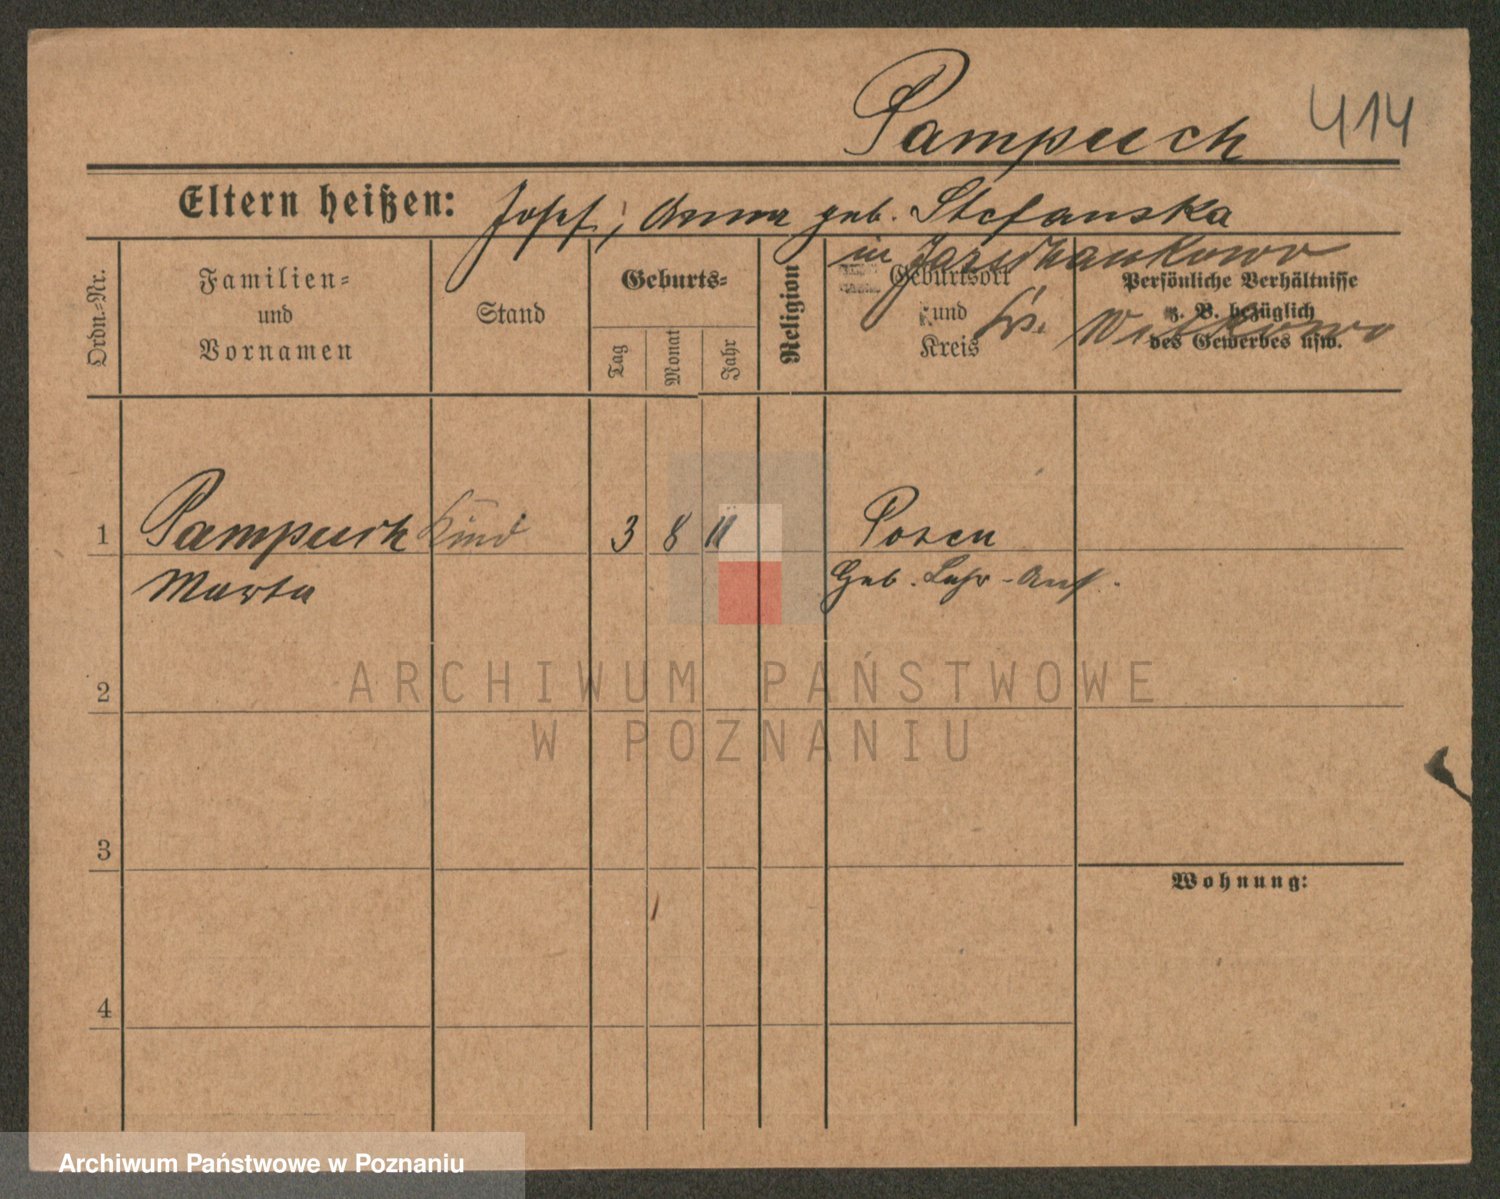 Pampuch 414
Eltern heißen: Josef, Anna geb. Stefanska
in
Ordn.-Nr.
Familien-
und
Vornamen
Stand
Geburts-
Tag
Monat
Jahr
Religion
Geburtsort
und
Kreis
Krs. Witkowo
Persönliche Verhältnisse
z. B. bezüglich
des Gewerbes usw.
1 Pampuch Kind 3 8 11 Posen
Marta Geb. Lehr-Anst.
2
3
4
Wohnung:
ARCHIWUM PAŃSTWOWE
W POZNANIU
Archiwum Państwowe w Poznaniu